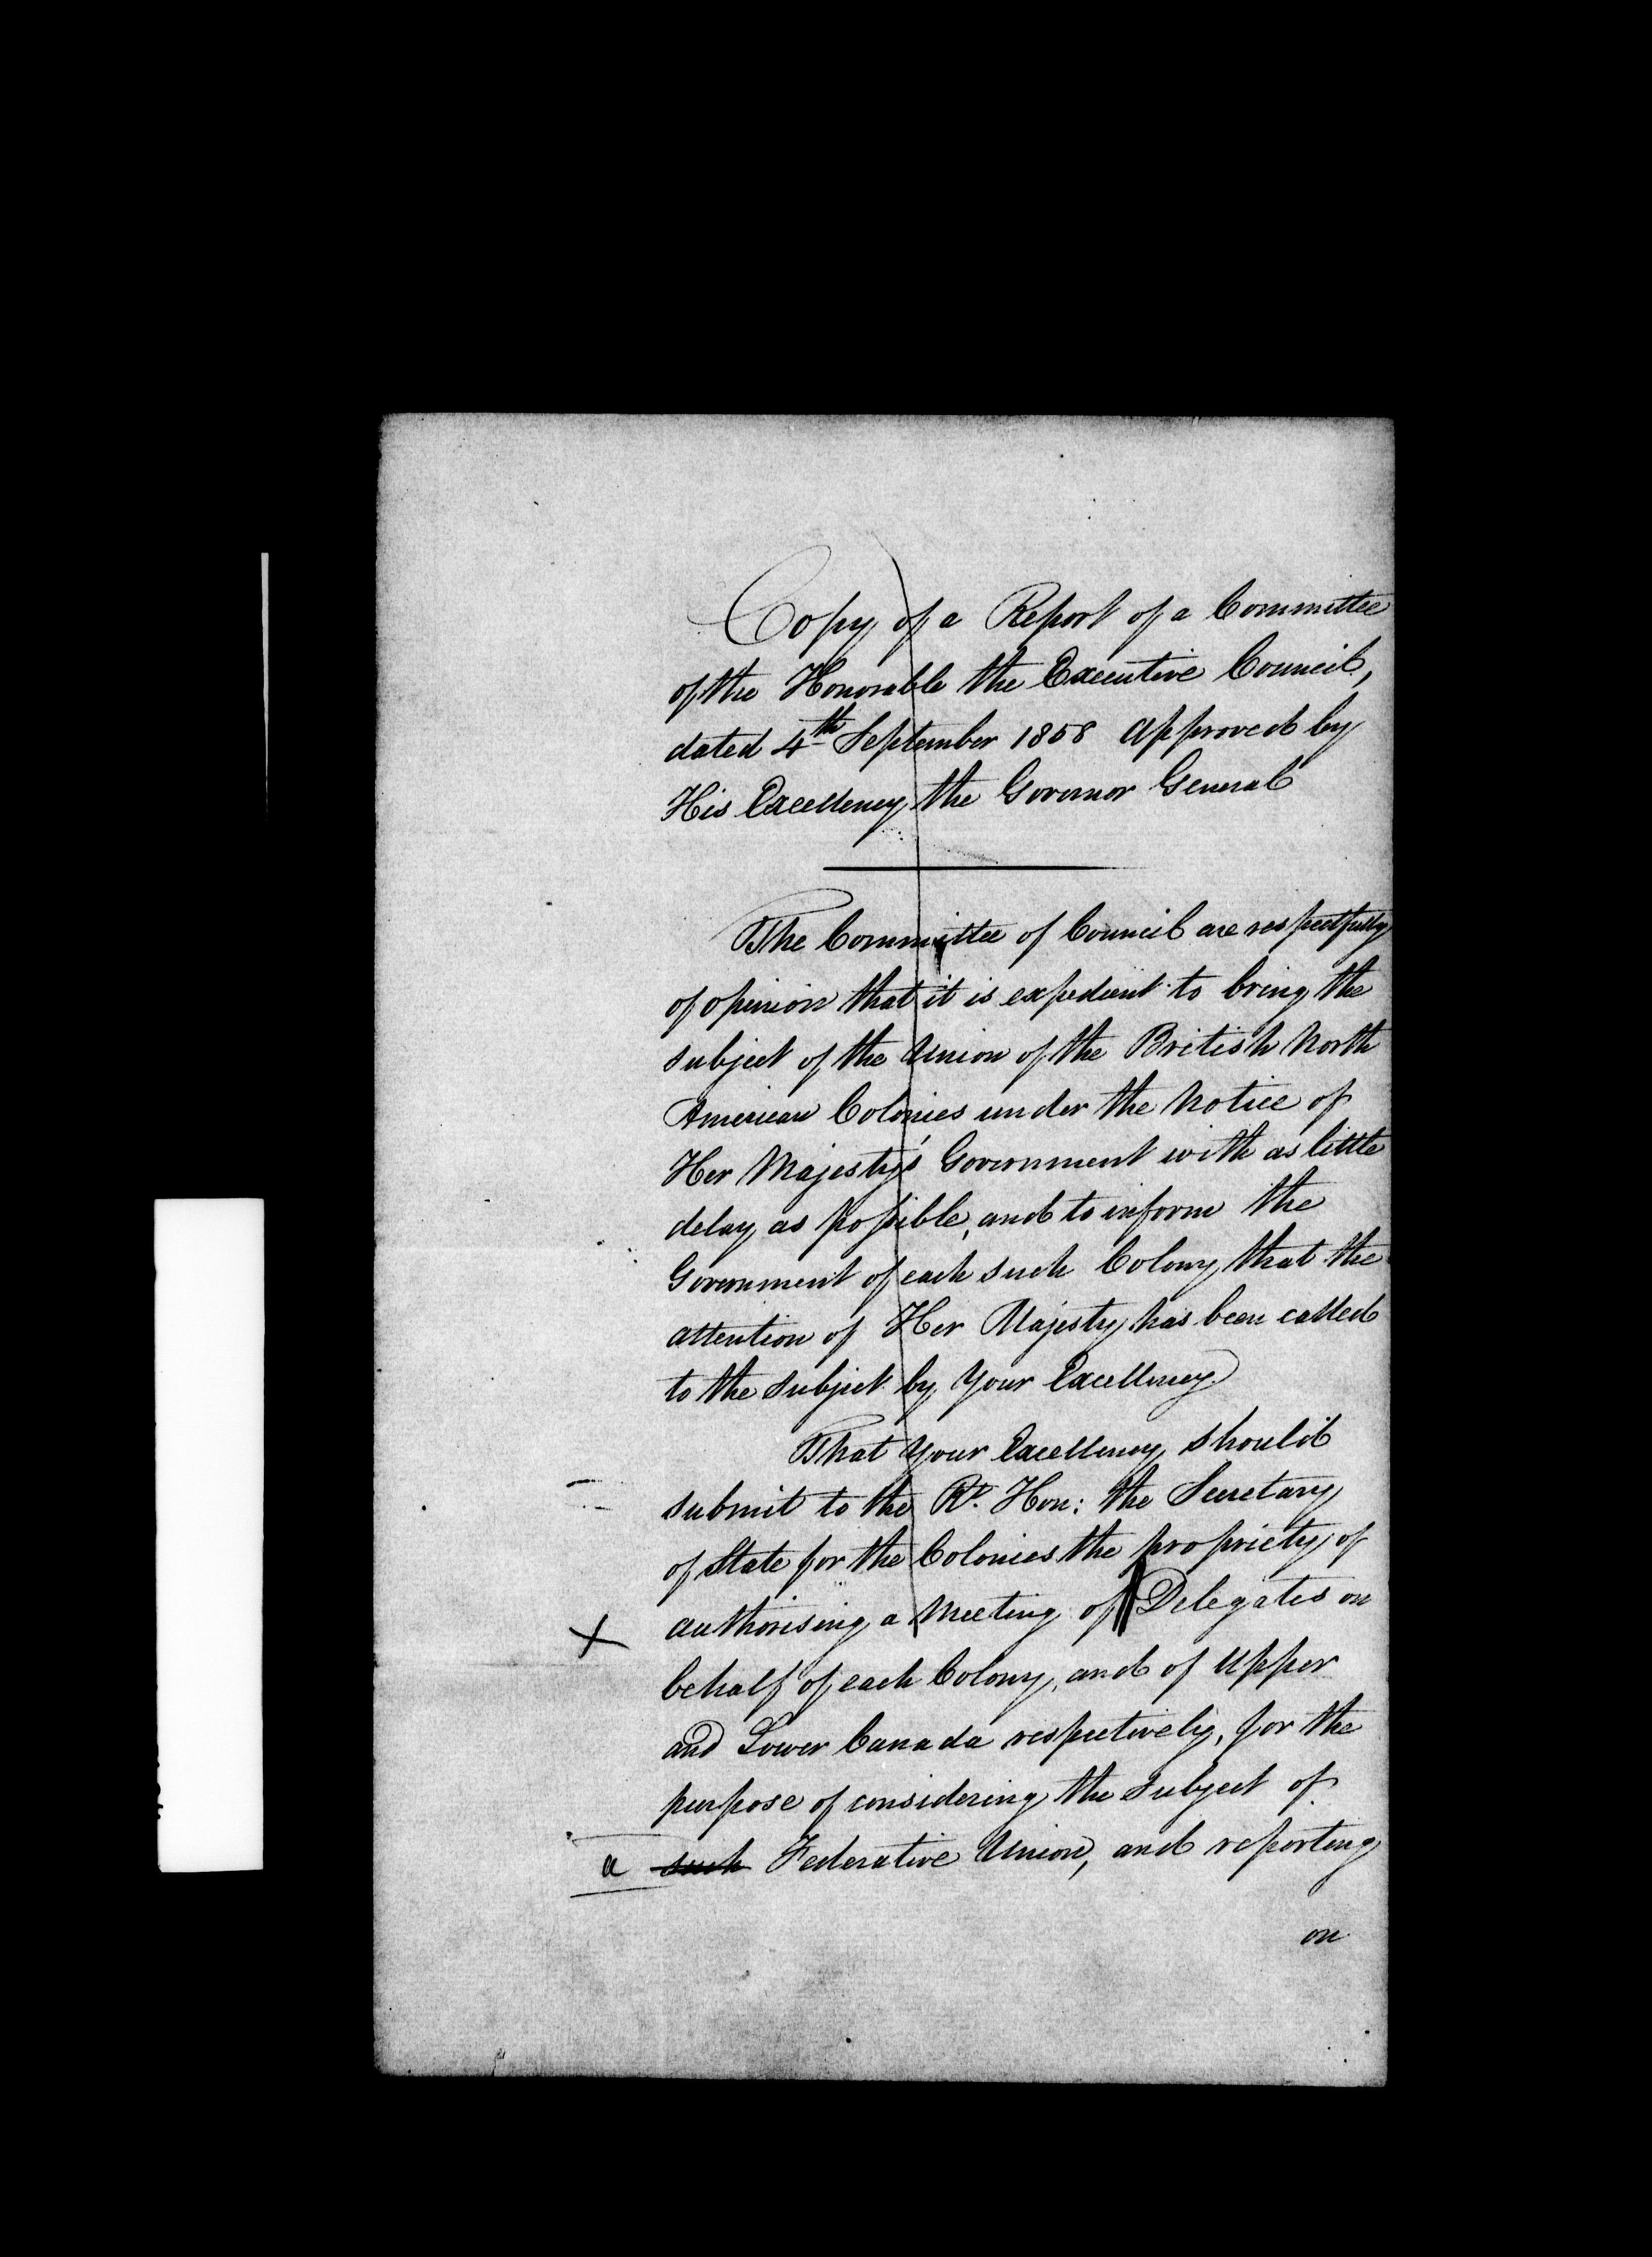 Copy of a Report of a Committee
of the Honorable the Executive Council,
dated 4th September 1858 Approved by
His Excellency the Governor General
The Committee of Council are respectfully
of opinion that it is expedient to bring the
subject of the Union of the British North
American Colonies under the Notice of
Her Majesty's Government with as little
delay as possible, and to inform the
Government of each such Colony that the
attention of Her Majesty has been called
to the subject by Your Excellency.
That Your Excellency should
submit to the Rt. Hon: the Secretary
of State for the Colonies the propriety of
X authorising a Meeting of Delegates on
behalf of each Colony, and of Upper
and Lower Canada respectively, for the
purpose of considering the subject of
a such Federative Union, and reporting
on